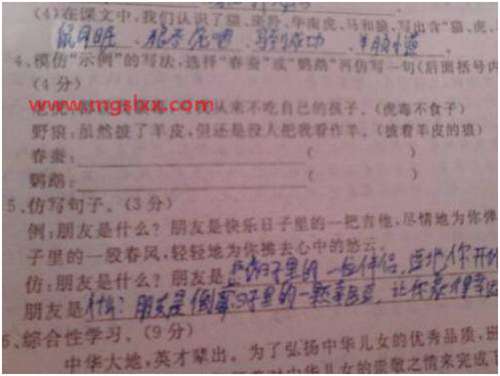 (4)在课文中,我们认识了猫、斑羚、华南虎、马和狼,写出含"猫、虎、
鼠目 虎 马 成功 羊
4.模仿"示例"的写法,选择"春蚕"或"鹦鹉"再仿写一句(后面括号内
(4分)
www.mgslxx.com 我从来不吃自己的孩子。(虎毒不食子)
野狼:虽然披了羊皮,但还是没人把我看作羊。(披着羊皮的狼)
春蚕: ( )
鹦鹉: ( )
5.仿写句子。(3分)
例:朋友是什么?朋友是快乐日子里的一把吉他,尽情地为你弹
子里的一股春风,轻轻地为你拂去心中的愁云。
仿:朋友是什么?朋友是 日子里的一位伴侣, 你开
朋友是什么?朋友是倒霉日子里的一颗 ,让你
6.综合性学习。(9分)
中华大地,英才辈出。为了弘扬中华儿女的优秀品质,班
中华儿女的崇敬之情来完成